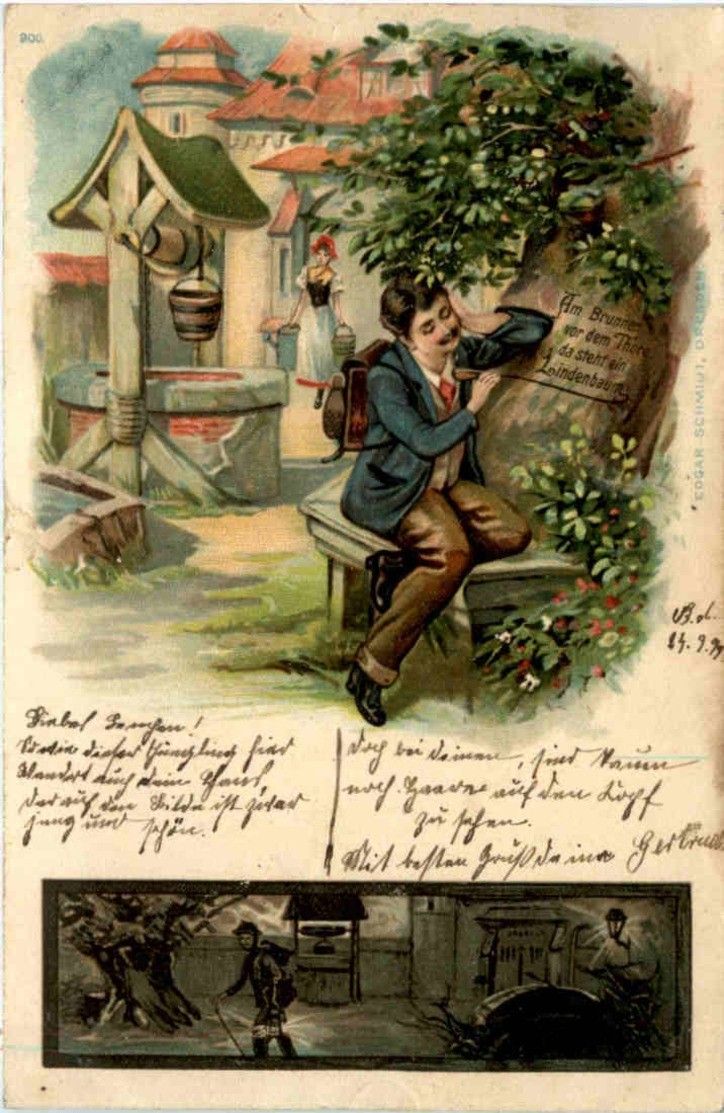 900.
Am Brunnen
vor dem Thore
da steht ein
Lindenbaum
EDGAR SCHMIDT, DRESDEN
14. 9. 99
Liebes Lenchen!
Sowie dieser Jüngling hier
Wandert auch dein Hans,
Der auf dem Bilde ist zwar
jung und schön.
Doch bei deinen, sind kaum
noch Haare auf den Kopf
zu sehen.
Mit besten Gruß deine Gertrud